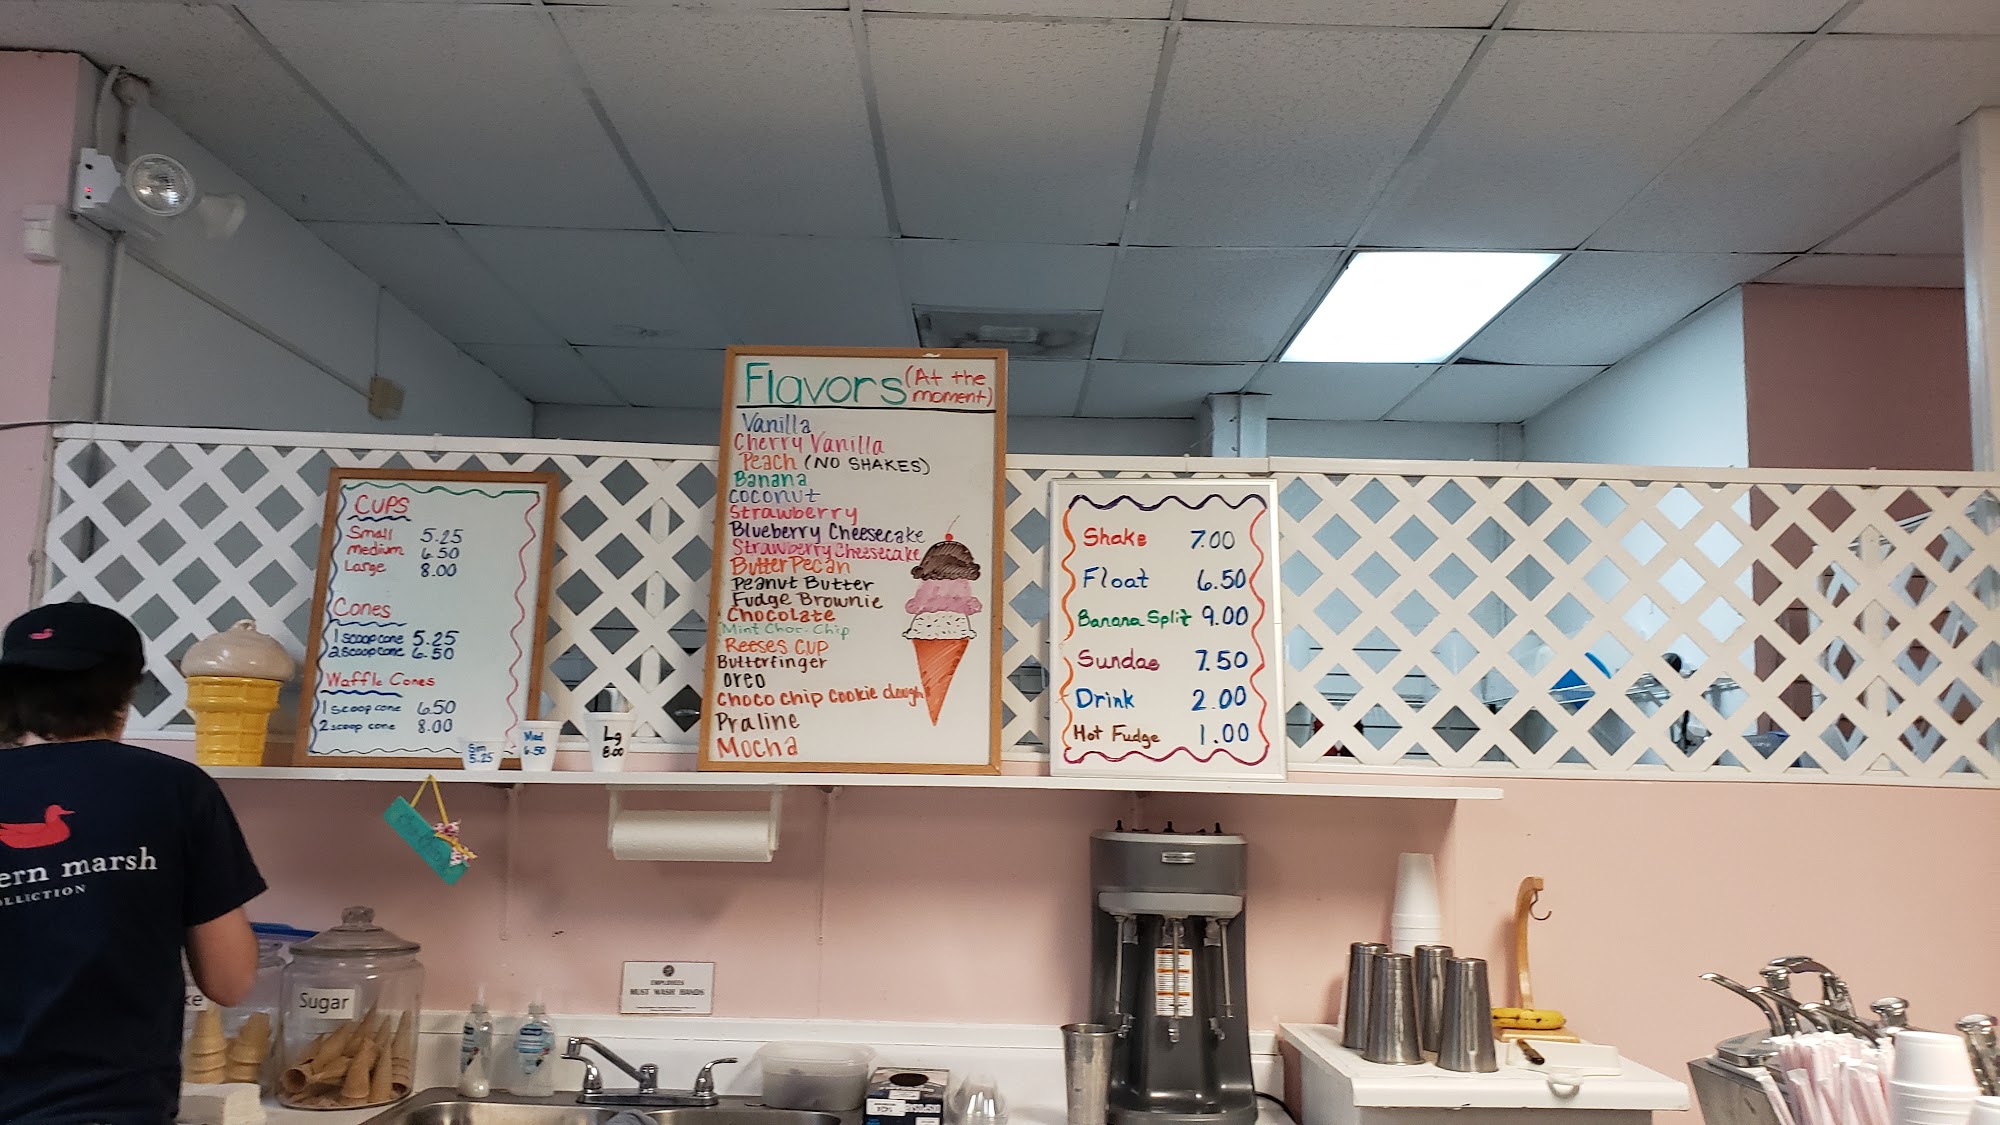 CUPS
Small 5.25
medium 6.50
Large 8.00
Cones
1 scoop cone 5.25
2 scoop cone 6.50
Waffle Cones
1 scoop cone 6.50
2 scoop cone 8.00
Sm
5.25
Med
6.50
Lg
8.00
Flavors (At the
moment)
Vanilla
Cherry Vanilla
Peach (NO SHAKES)
Banana
Coconut
Strawberry
Blueberry Cheesecake
Strawberry Cheesecake
Butter Pecan
Peanut Butter
Fudge Brownie
Chocolate
Mint Choc. Chip
Reeses CUP
Butterfinger
Oreo
Choco chip cookie dough
Praline
Mocha
Shake 7.00
Float 6.50
Banana Split 9.00
Sundae 7.50
Drink 2.00
Hot Fudge 1.00
ern marsh
OLLECTION
ke
Sugar
EMPLOYEES
MUST WASH HANDS